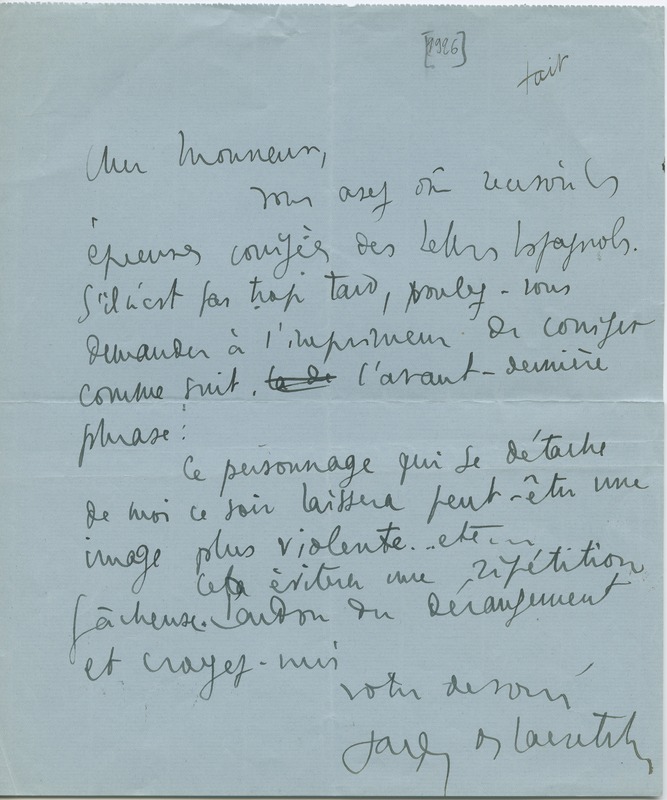 [1926]
fait
Cher Monsieur,
vous avez dû recevoir les
épreuves corrigées des Lettres Espagnoles.
S'il n'est pas trop tard, voulez-vous
demander à l'imprimeur de corriger
comme suit, la de l'avant-dernière
phrase :
Ce personnage qui se détache
de moi ce soir laissera peut-être une
image plus violente... etc...
Cela évitera une répétition
fâcheuse. Pardon du dérangement
et croyez-moi
votre dévoué
Jacques de Lacretelle